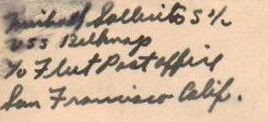 Sollecito S 1/c
USS Belknap
c/o Fleet Post office
San Francisco Calif.